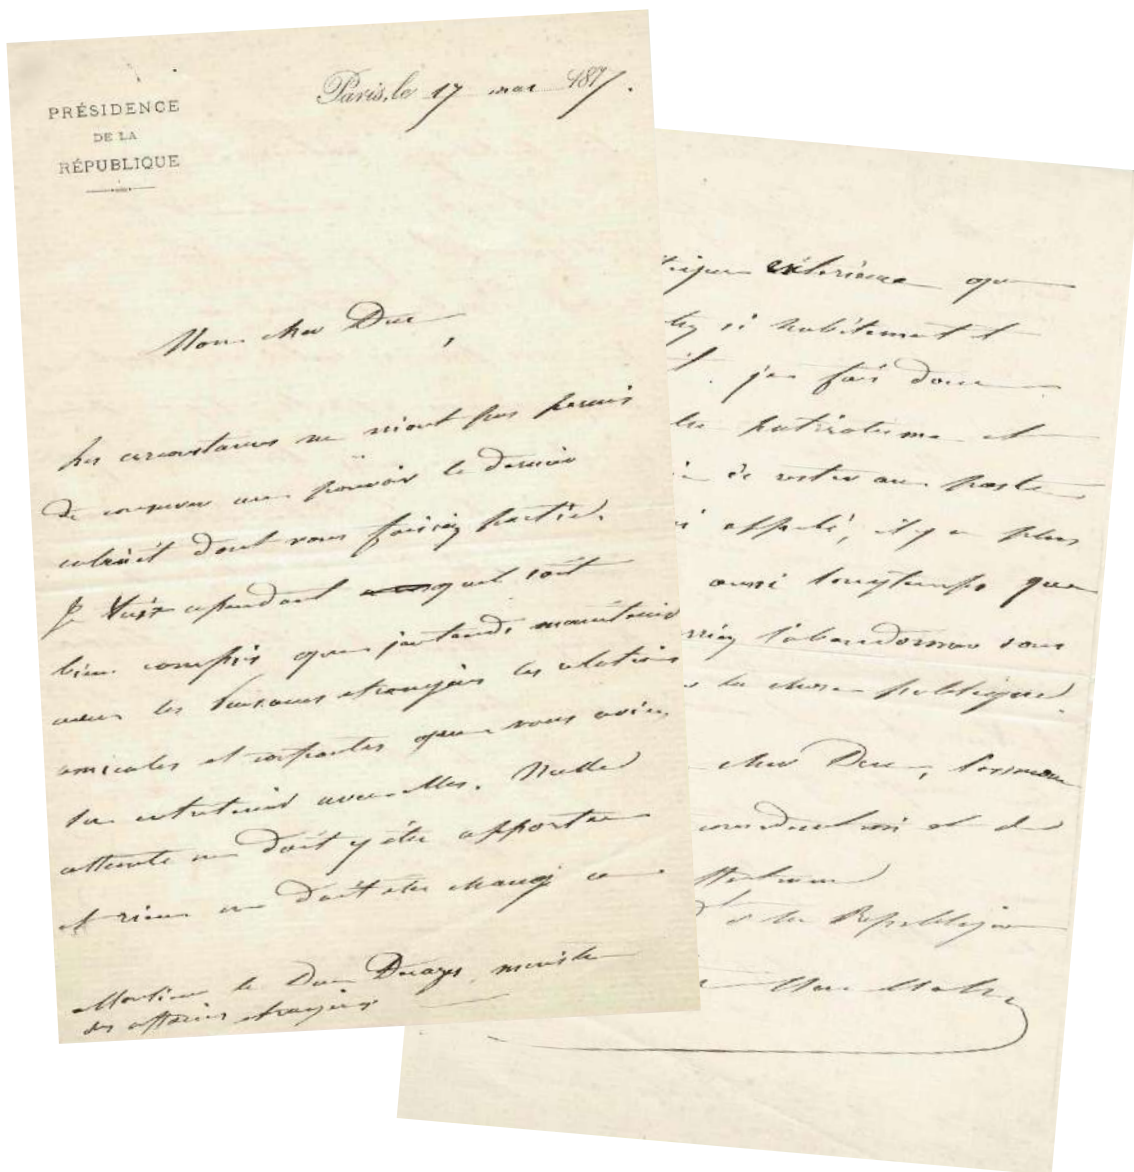 PRÉSIDENCE
DE LA
RÉPUBLIQUE
Paris, le 17 mai 1877.
Mon cher Duc,
Les circonstances ne m'ont pas permis
de conserver au pouvoir le dernier
cabinet dont vous faisiez partie.
Je tiens cependant qu'il soit
bien compris que j'entends maintenir
avec les puissances étrangères les relations
amicales et confiantes que vous aviez
su entretenir avec elles. Nulle
atteinte ne doit y être apportée
et rien ne doit être changé
Monsieur le Duc Decazes, ministre
des affaires étrangères
tique extérieure que
si habilement
je fais donc
patriotisme et
de rester au poste
appelé, il y a plus
aussi longtemps que
l'abandonner sans
la chose publique.
cher Duc,
considération et de
de la République
Mac Mahon